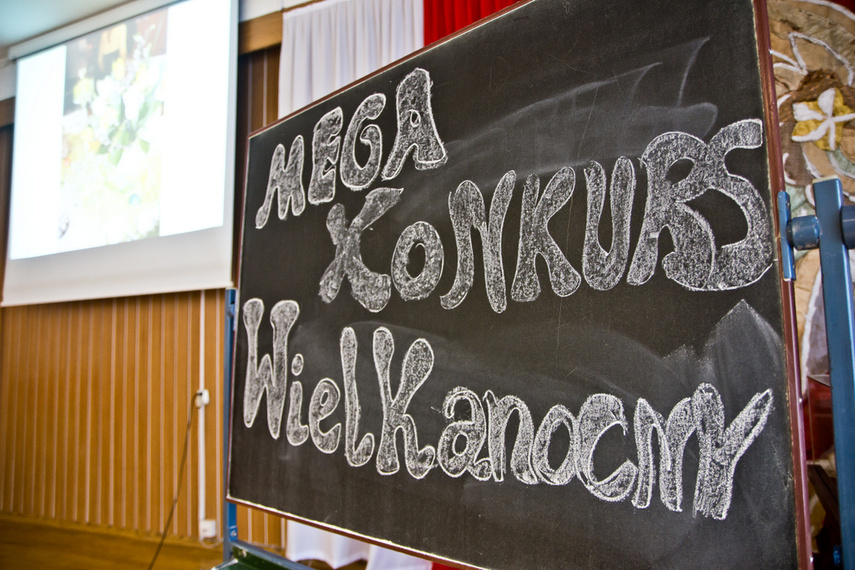 MEGA
KONKURS
WielKanocny